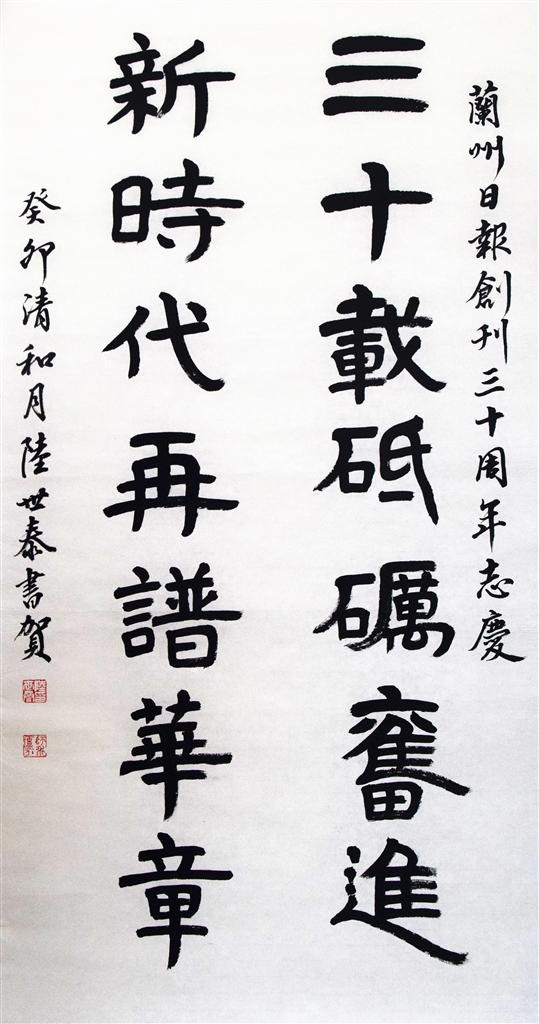 蘭州日報創刊三十周年志慶
三十載砥礪奮進
新時代再譜華章
癸卯清和月陸世泰書賀